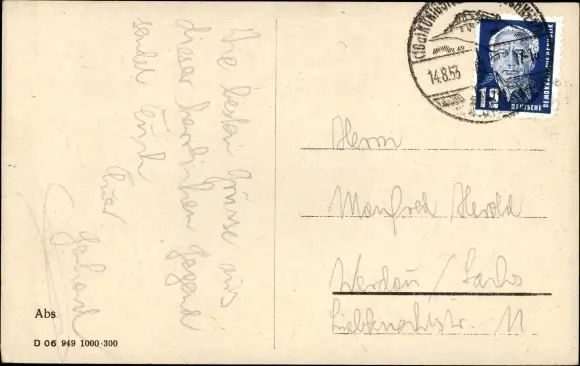 Die besten Grüsse aus
dieser herrlichen Gegend
sendet Euch
Euer
Gerhard
14.8.53
12
DEUTSCHE
DEMOKRATISCHE REPUBLIK
Herrn
Manfred Herold
Werdau / Sachs
Liebknechtstr. 11
Abs
D 06 949 1000·300